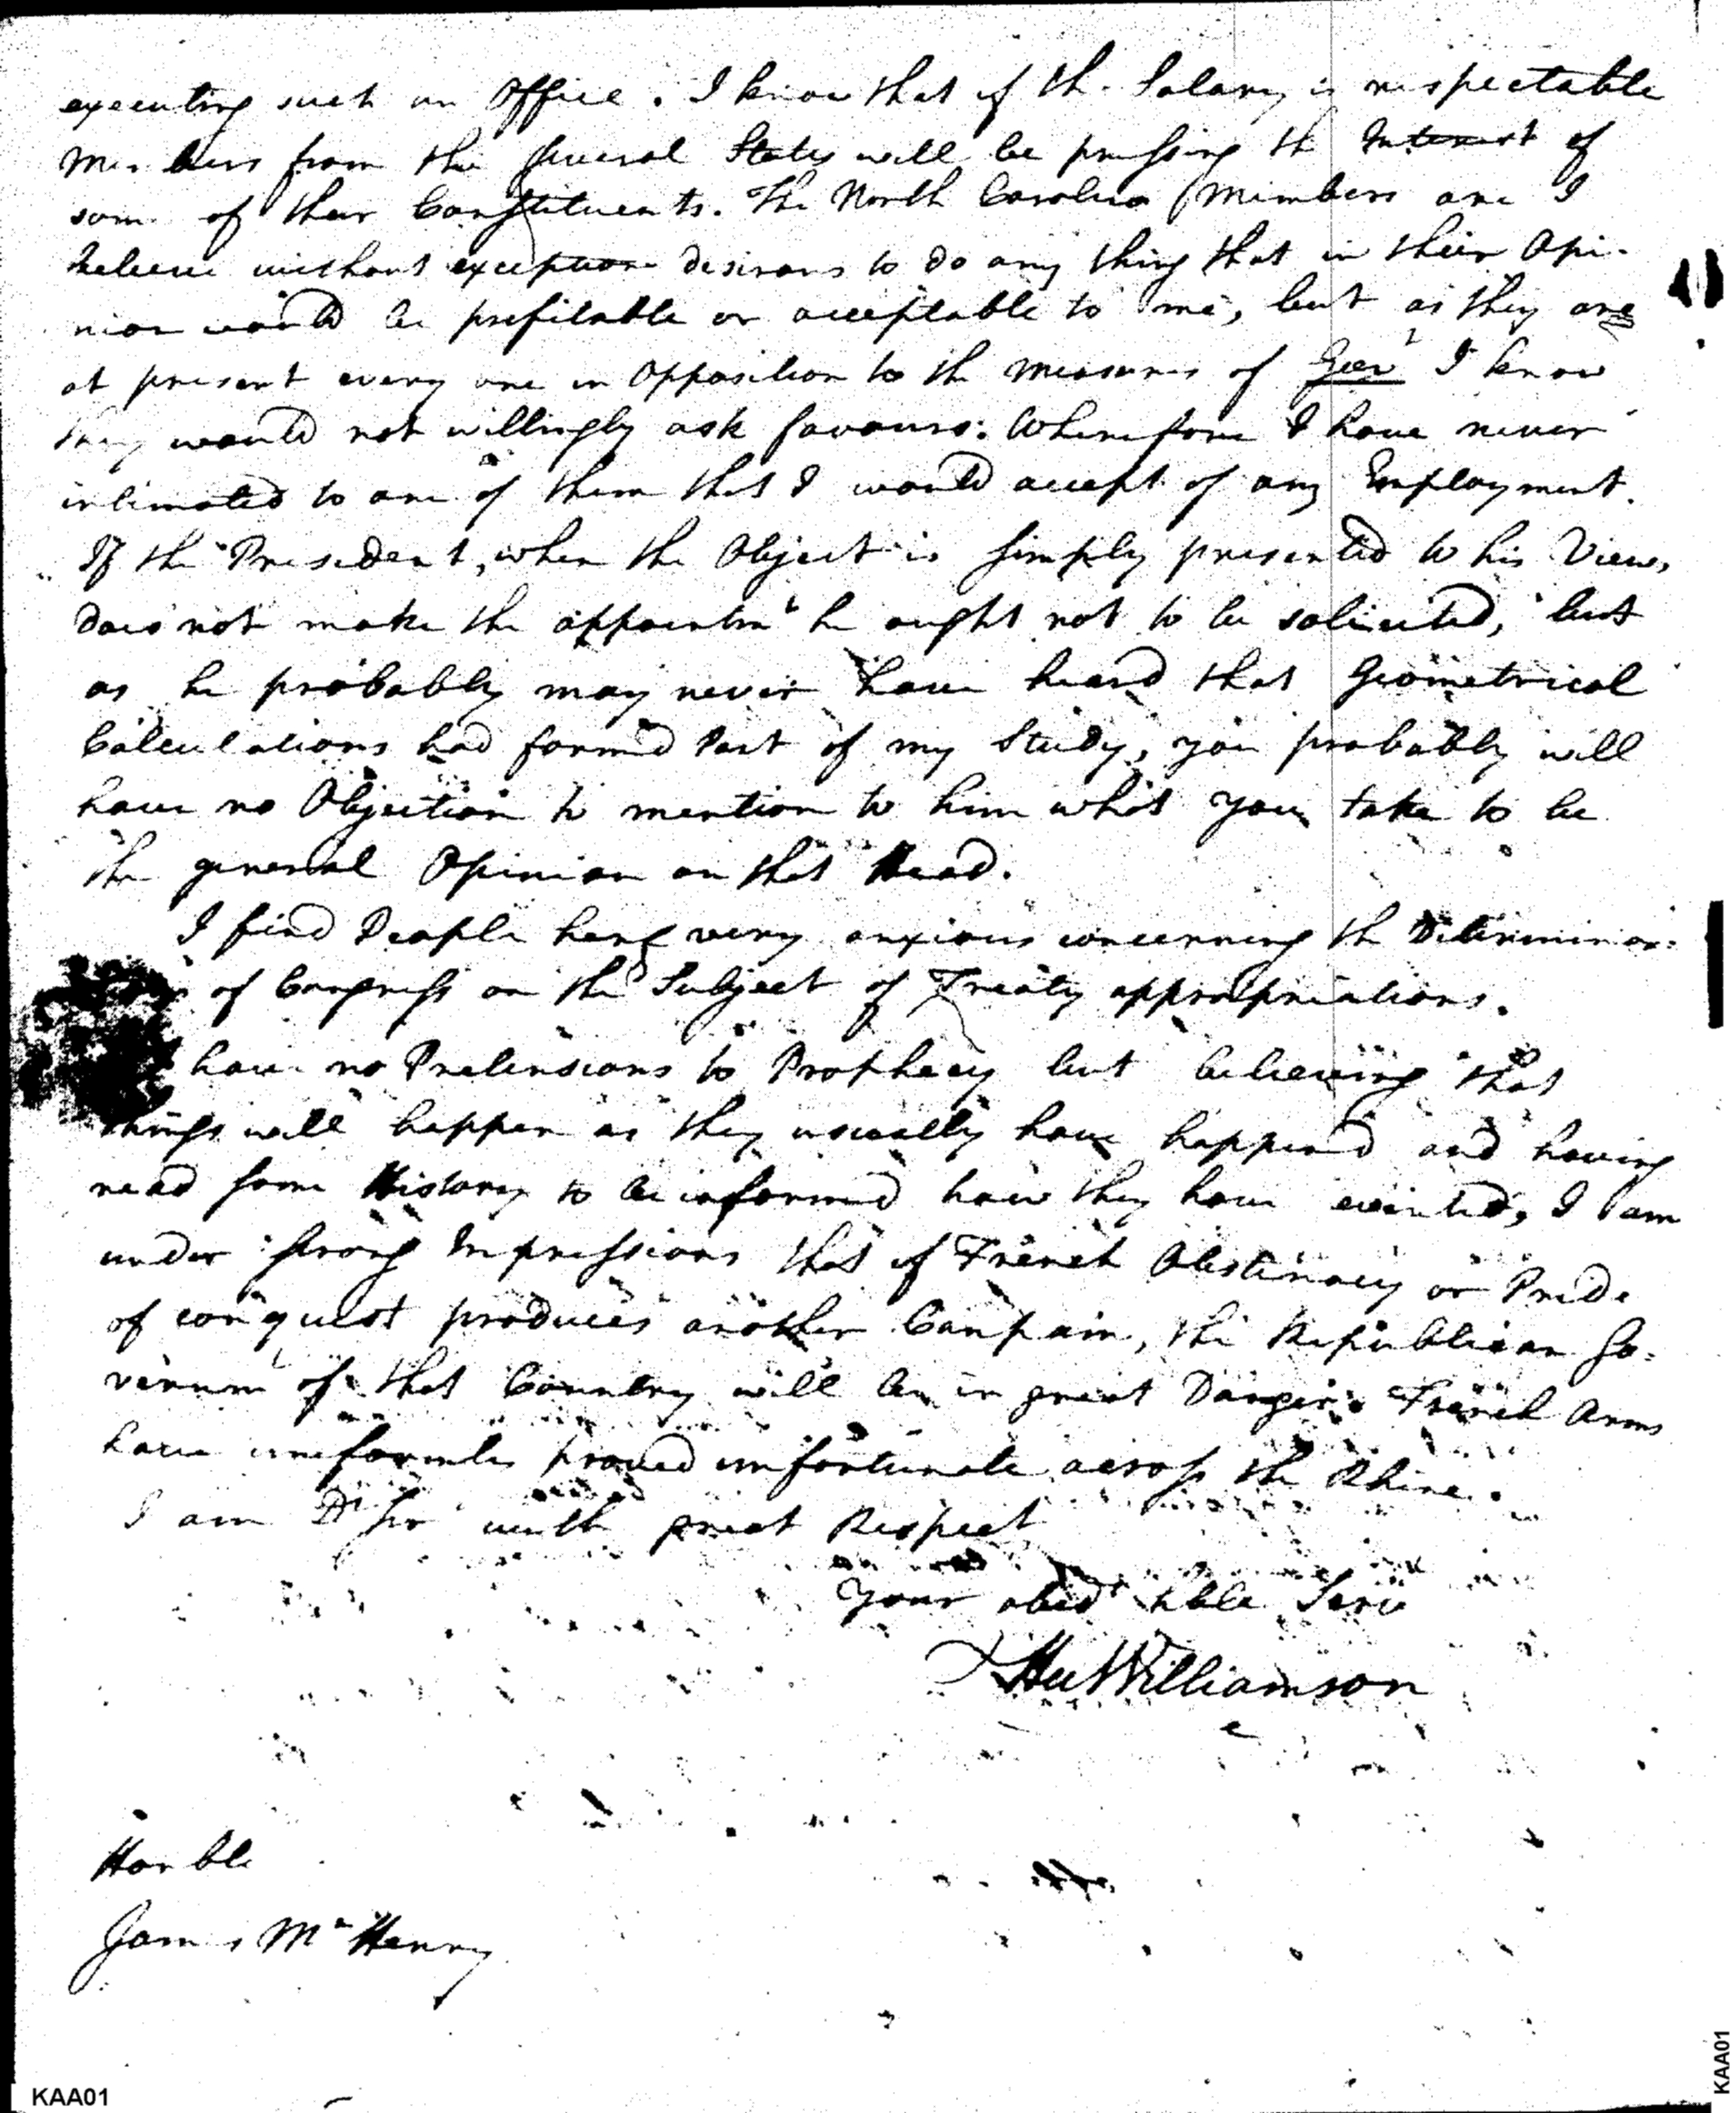 executing such an Office. I know that if the Salary is respectable
Members from the several States will be pressing the Interest of
some of their Constituents. The North Carolina Members are I
believe without exception desirous to do any thing that in their Opi-
nion would be profitable or acceptable to me, but as they are
at present every one in Opposition to the measures of Govt I know
they would not willingly ask favours: Wherefore I have never
intimated to one of them that I would accept of any Employment.
If the President, when the Object is simply presented to his View,
does not make the appointmt he ought not to be solicited, but
as he probably may never have heard that Geometrical
Calculations had formed Part of my Study, you probably will
have no Objection to mention to him what you take to be
the general Opinion on that Head.
I find People here very anxious concerning the Determina-
of Congress on the Subject of Treaty appropriations.
have no Pretensions to Prophecy but believing that
things will happen as they usually have happened and having
read some History to be informed how they have evented, I am
under strong Impressions that if French Obstinacy or Pride
of conquest produces another Campain, the Republican Go-
vernmt of that Country will be in great Danger. French Arms
have uniformly proved unfortunate across the Rhine.
I am Dr Sir with great Respect
Your obedt hble Serv
Hu Williamson
Honble
James McHenry
KAA01
KAA01